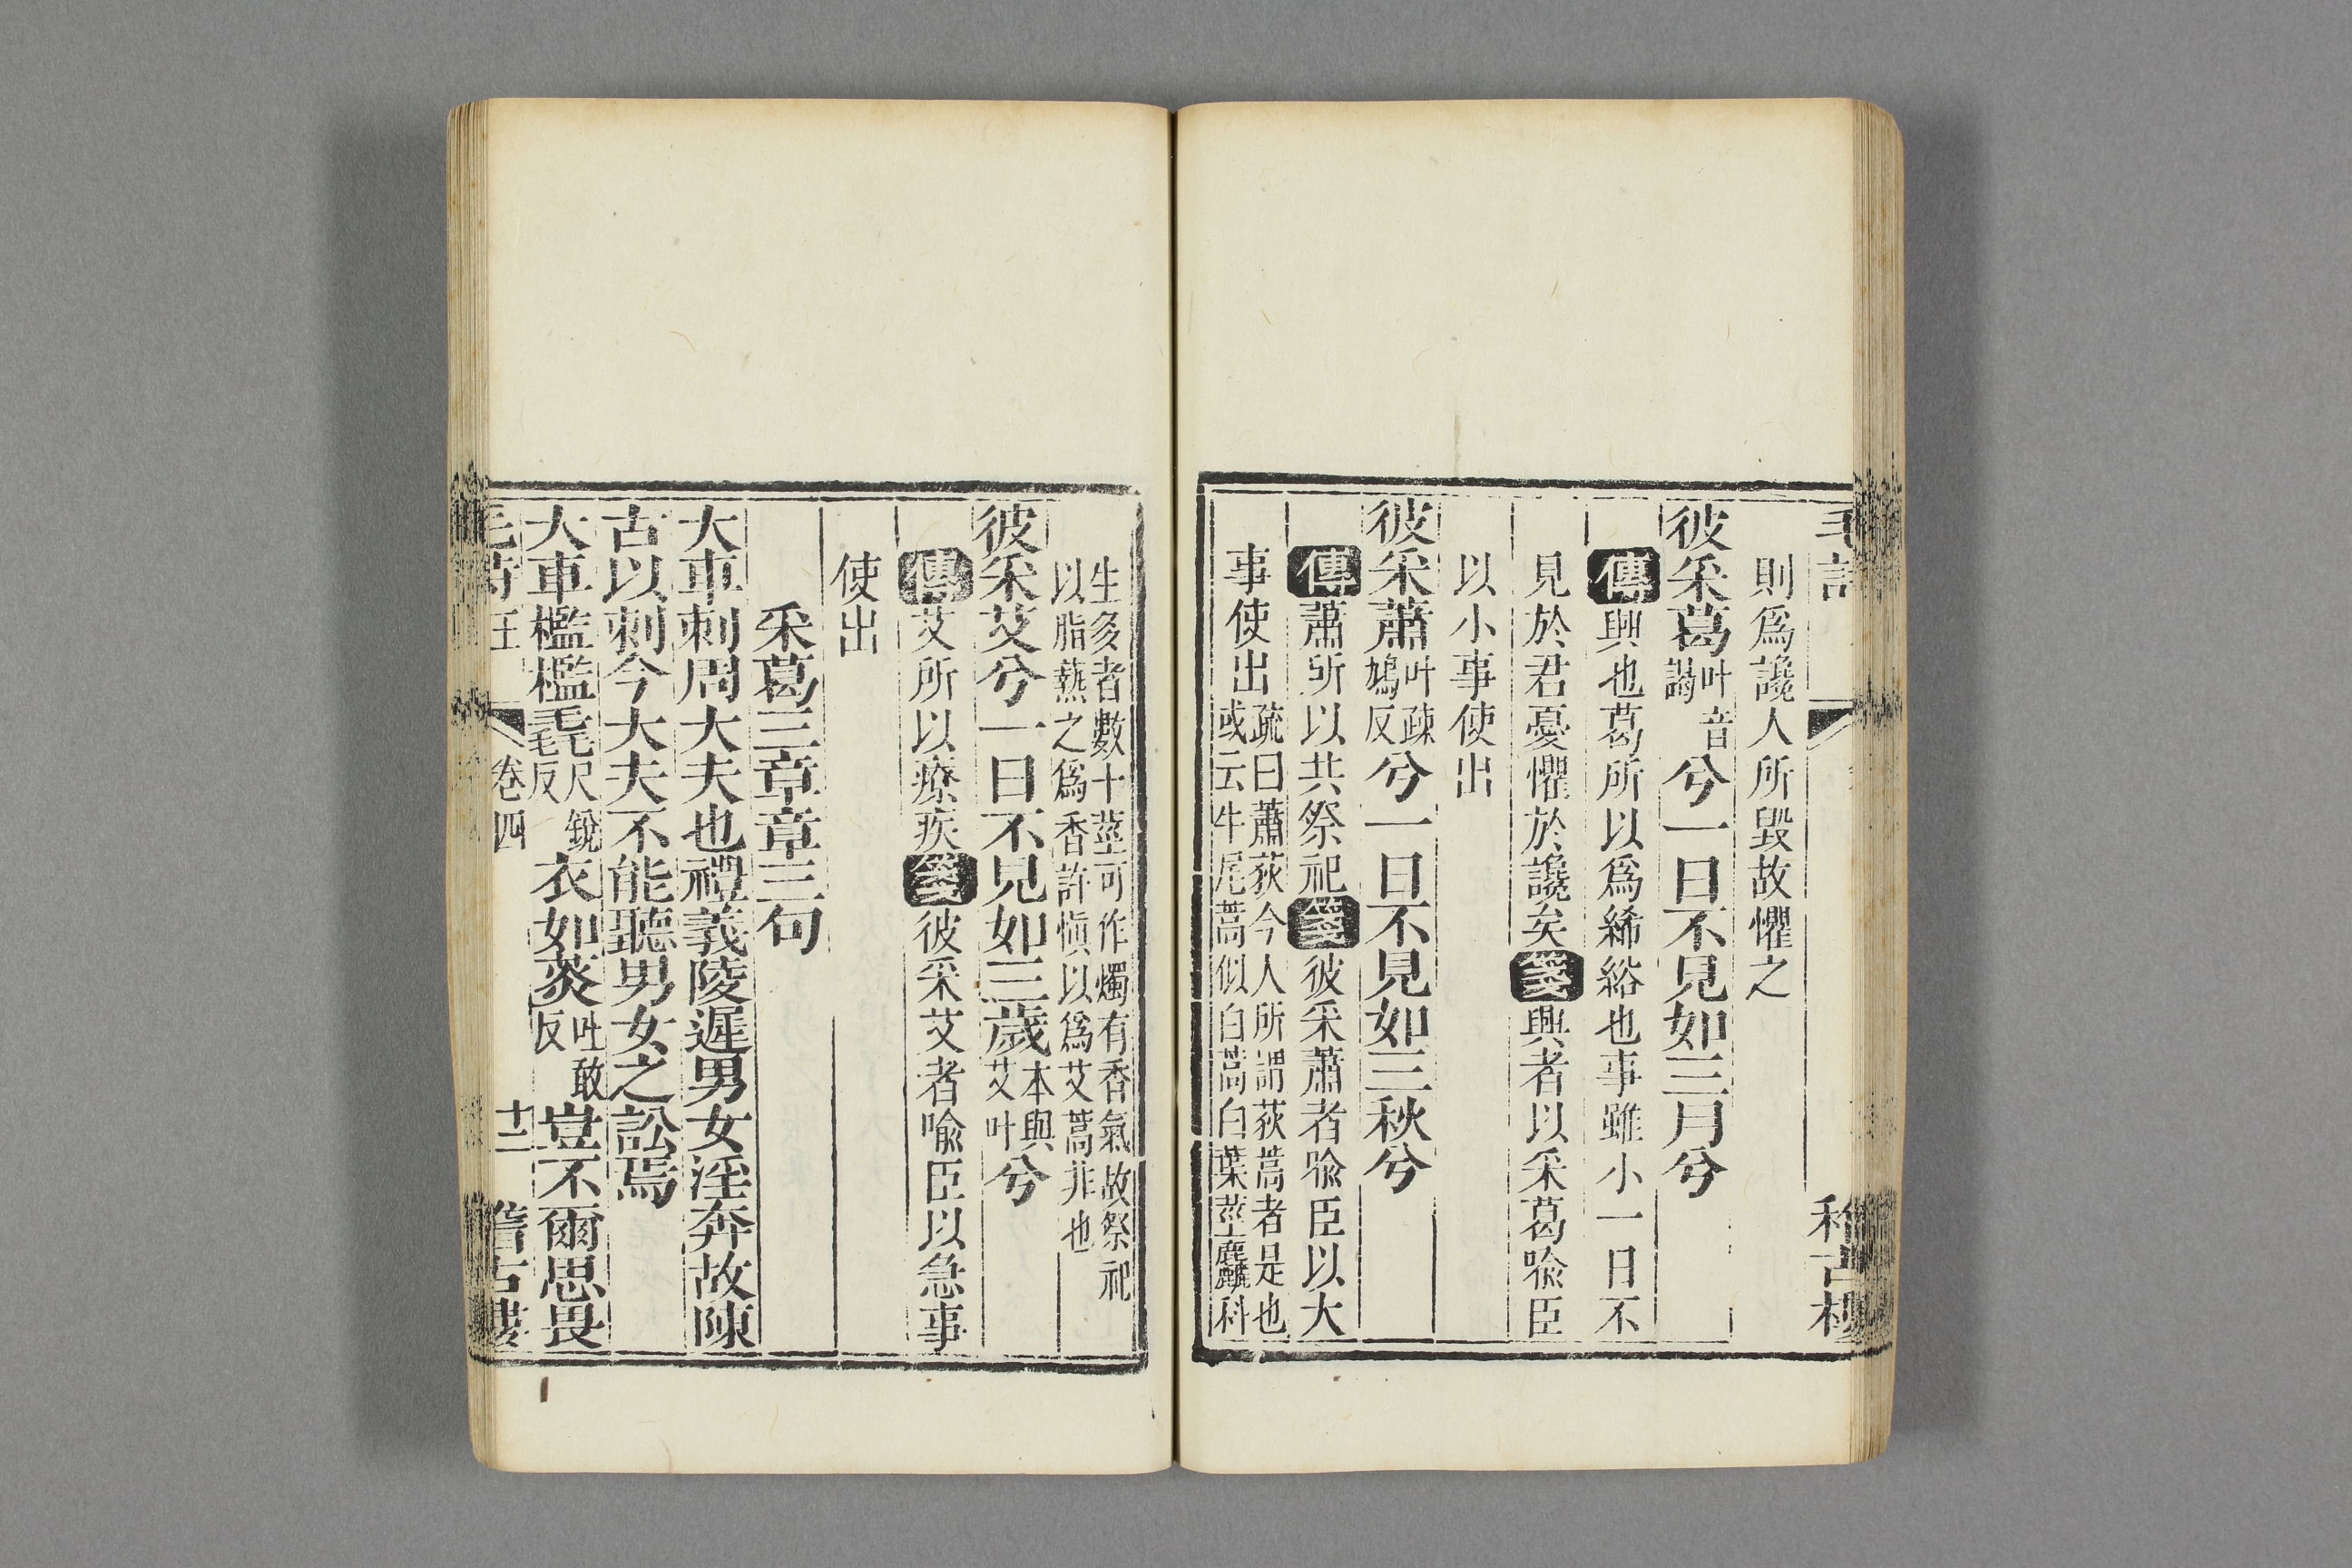 毛詩 稽古樓
則爲讒人所毀故懼之
彼采葛叶音謁兮一日不見如三月兮
傳興也葛所以爲絺綌也事雖小一日不
見於君憂懼於讒矣箋興者以采葛喻臣
以小事使出
彼采蕭叶疎鳩反兮一日不見如三秋兮
傳蕭所以共祭祀箋彼采蕭者喻臣以大
事使出疏曰蕭荻今人所謂荻蒿者是也或云牛尾蒿似白蒿白葉莖麤科
生多者數十莖可作燭有香氣故祭祀以脂爇之爲香許愼以爲艾蒿非也
彼采艾兮一日不見如三歲本與艾叶兮
傳艾所以療疾箋彼采艾者喻臣以急事
使出
采葛三章章三句
大車刺周大夫也禮義陵遲男女淫奔故陳
古以刺今大夫不能聽男女之訟焉
大車檻檻毳尺銳反衣如菼吐敢反豈不爾思畏
毛詩王 卷四 十二 稽古樓